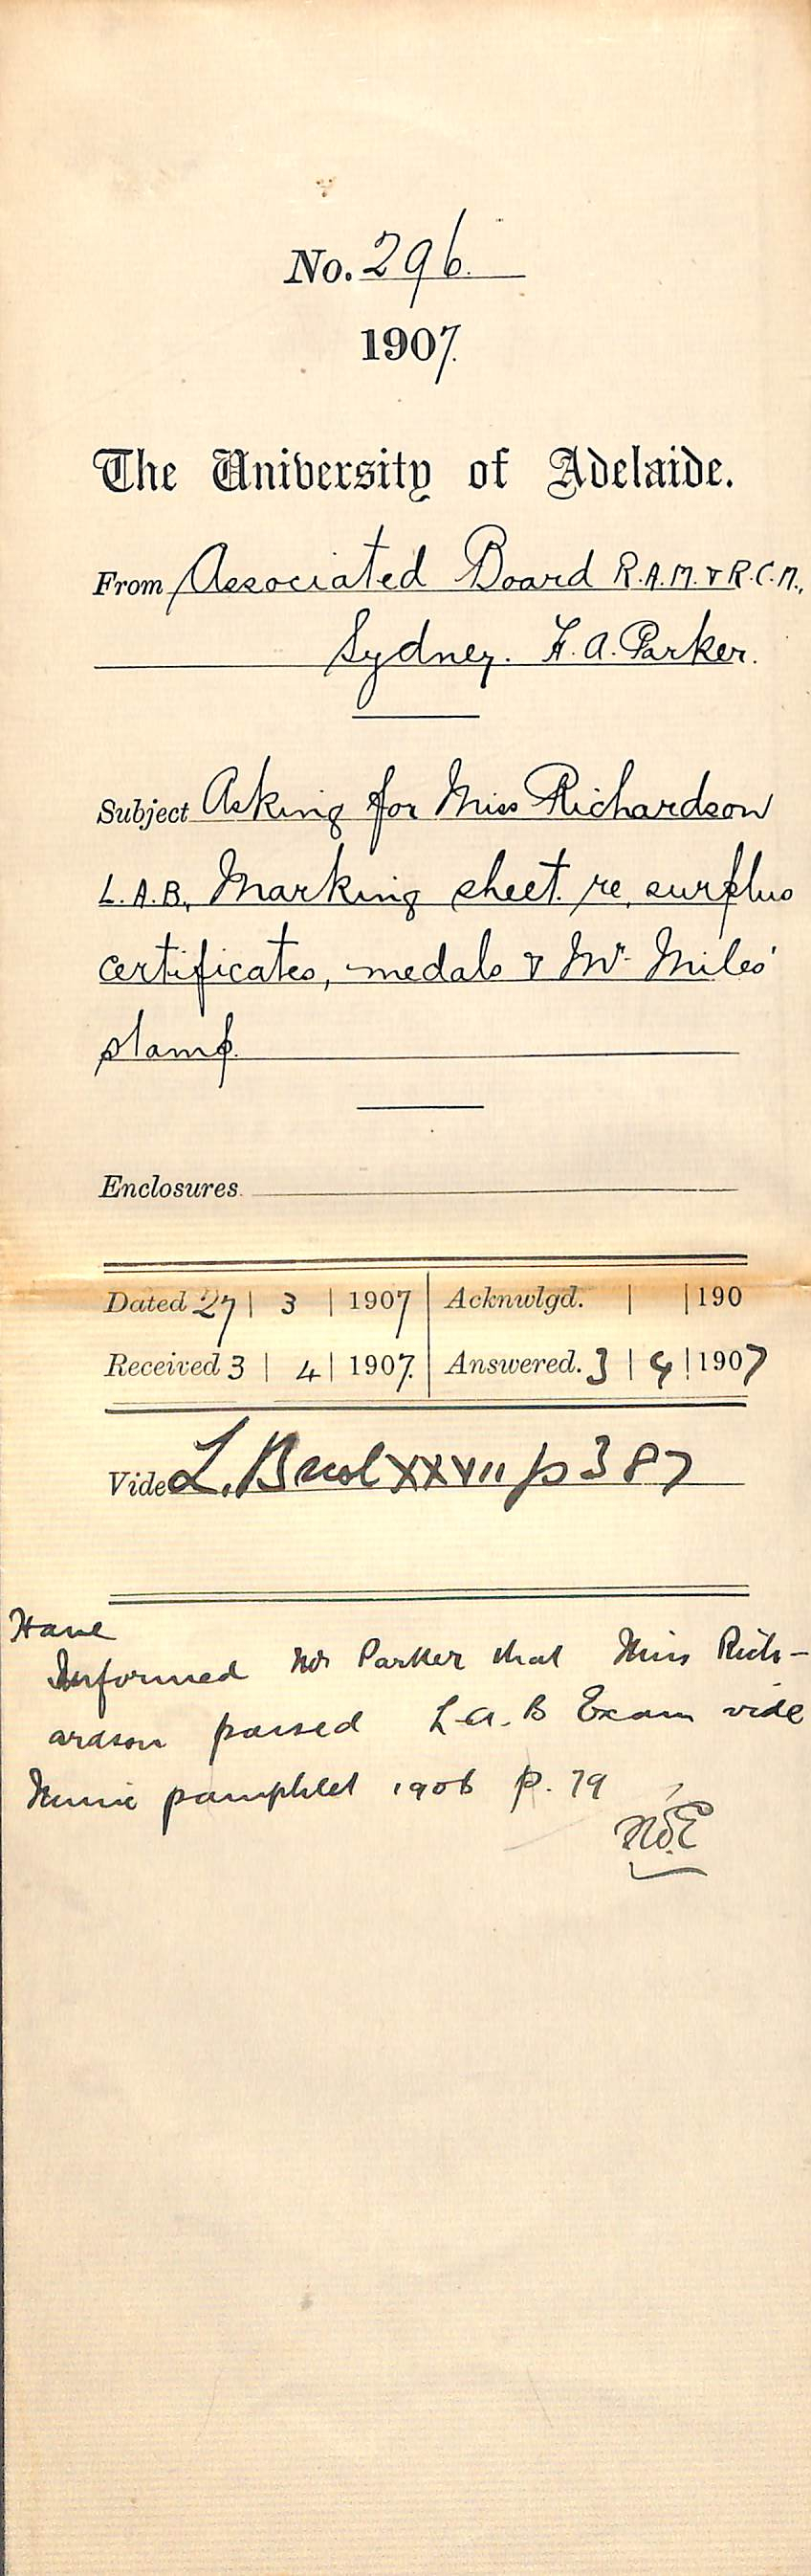 No. 296.
1907.
The University of Adelaide.
From Associated Board R.A.M. & R.C.M.,
Sydney. F. A. Parker.
Subject Asking for Miss Richardson
L.A.B. Marking sheet. re, surplus
certificates, medals & Mr. Miles'
stamp.
Enclosures.
Dated 27 | 3 | 1907 | Acknwlgd. | | 190
Received 3 | 4 | 1907. | Answered. 3 | 4 | 1907
Vide L.B vol xxvii p 387
Have
Informed Mr Parker that Miss Rich-
ardson passed L.A.B Exam vide
Music pamphlet 1906 p. 79